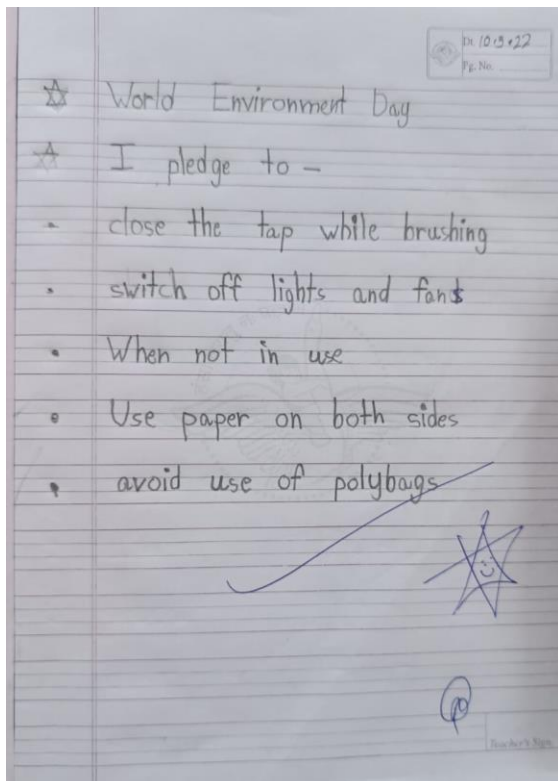 Dt. 10.9.22
Pg. No.
World Environment Day
I pledge to –
close the tap while brushing
switch off lights and fans
When not in use
Use paper on both sides
avoid use of polybags
Teacher's Sign